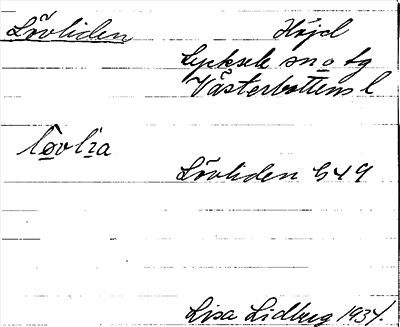 Lövliden Höjd
Lycksele sn o tg
Västerbottens l
lövlia
Lövliden G49
Lisa Lidberg 1934.